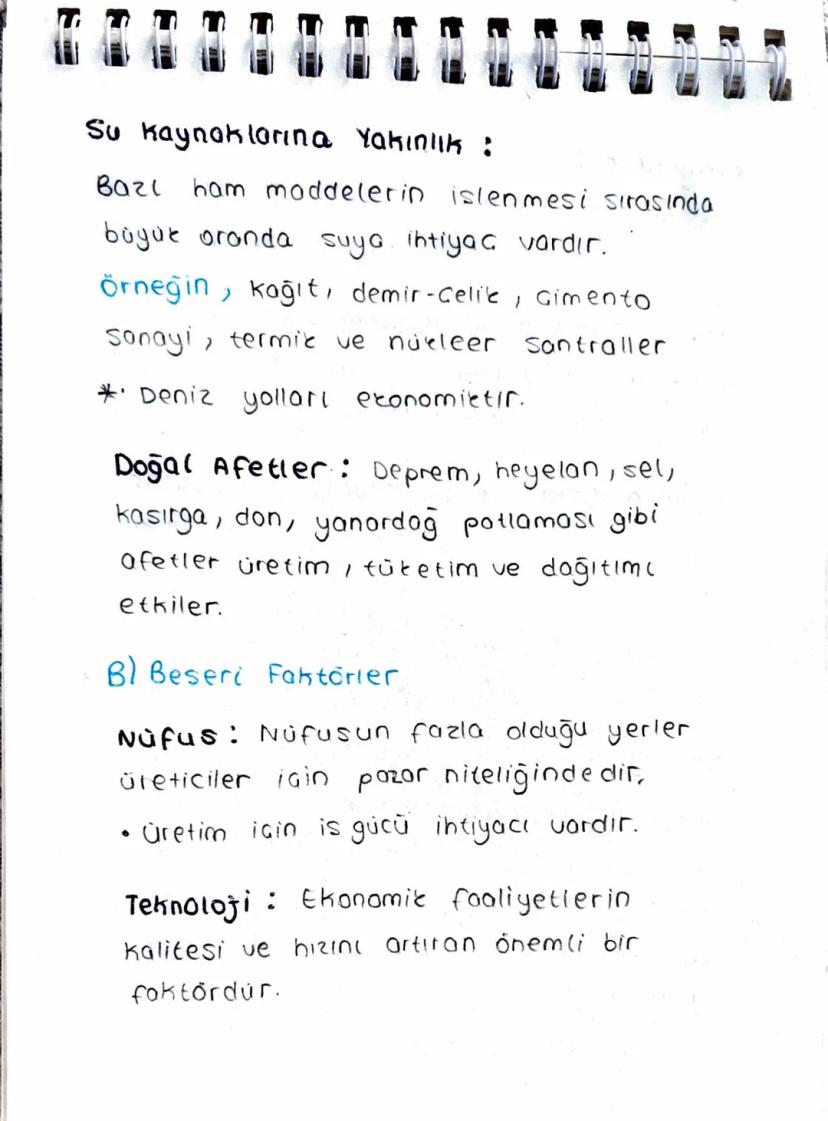 Su Kaynaklarına Yakınlık :
Bazı ham maddelerin islenmesi sırasında
büyük oranda suya ihtiyac vardır.
Örneğin, kağıt, demir-Celik, Cimento
Sanayi, termik ve nükleer Santraller
*· Deniz yolları ekonomiktir.
Doğal Afetler : Deprem, heyelan, sel,
kasırga, don, yanardağ patlaması gibi
afetler üretim, tüketim ve dağıtımı
etkiler.
B) Beseri Faktörler
Nüfus : Nüfusun fazla olduğu yerler
üreticiler icin pazar niteliğindedir,
• Üretim icin is gücü ihtiyacı vardır.
Teknoloji : Ekonomik faaliyetlerin
kalitesi ve hızını artıran önemli bir
faktördür.